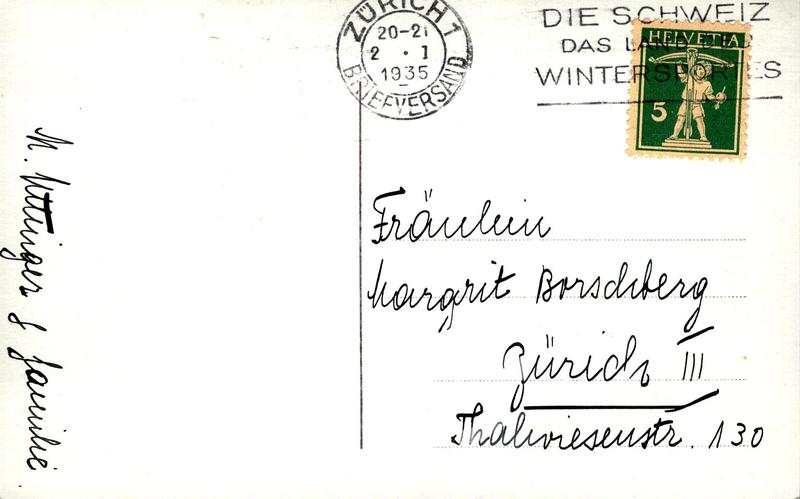 ZÜRICH 1
20-21
2 . I
1935
BRIEFVERSAND
DIE SCHWEIZ
DAS LAND DES
WINTERSPORTES
HELVETIA
5
Fräulein
Margrit Borschberg
Zürich III
Thalwiesenstr. 130
M. Uttinger & Familie